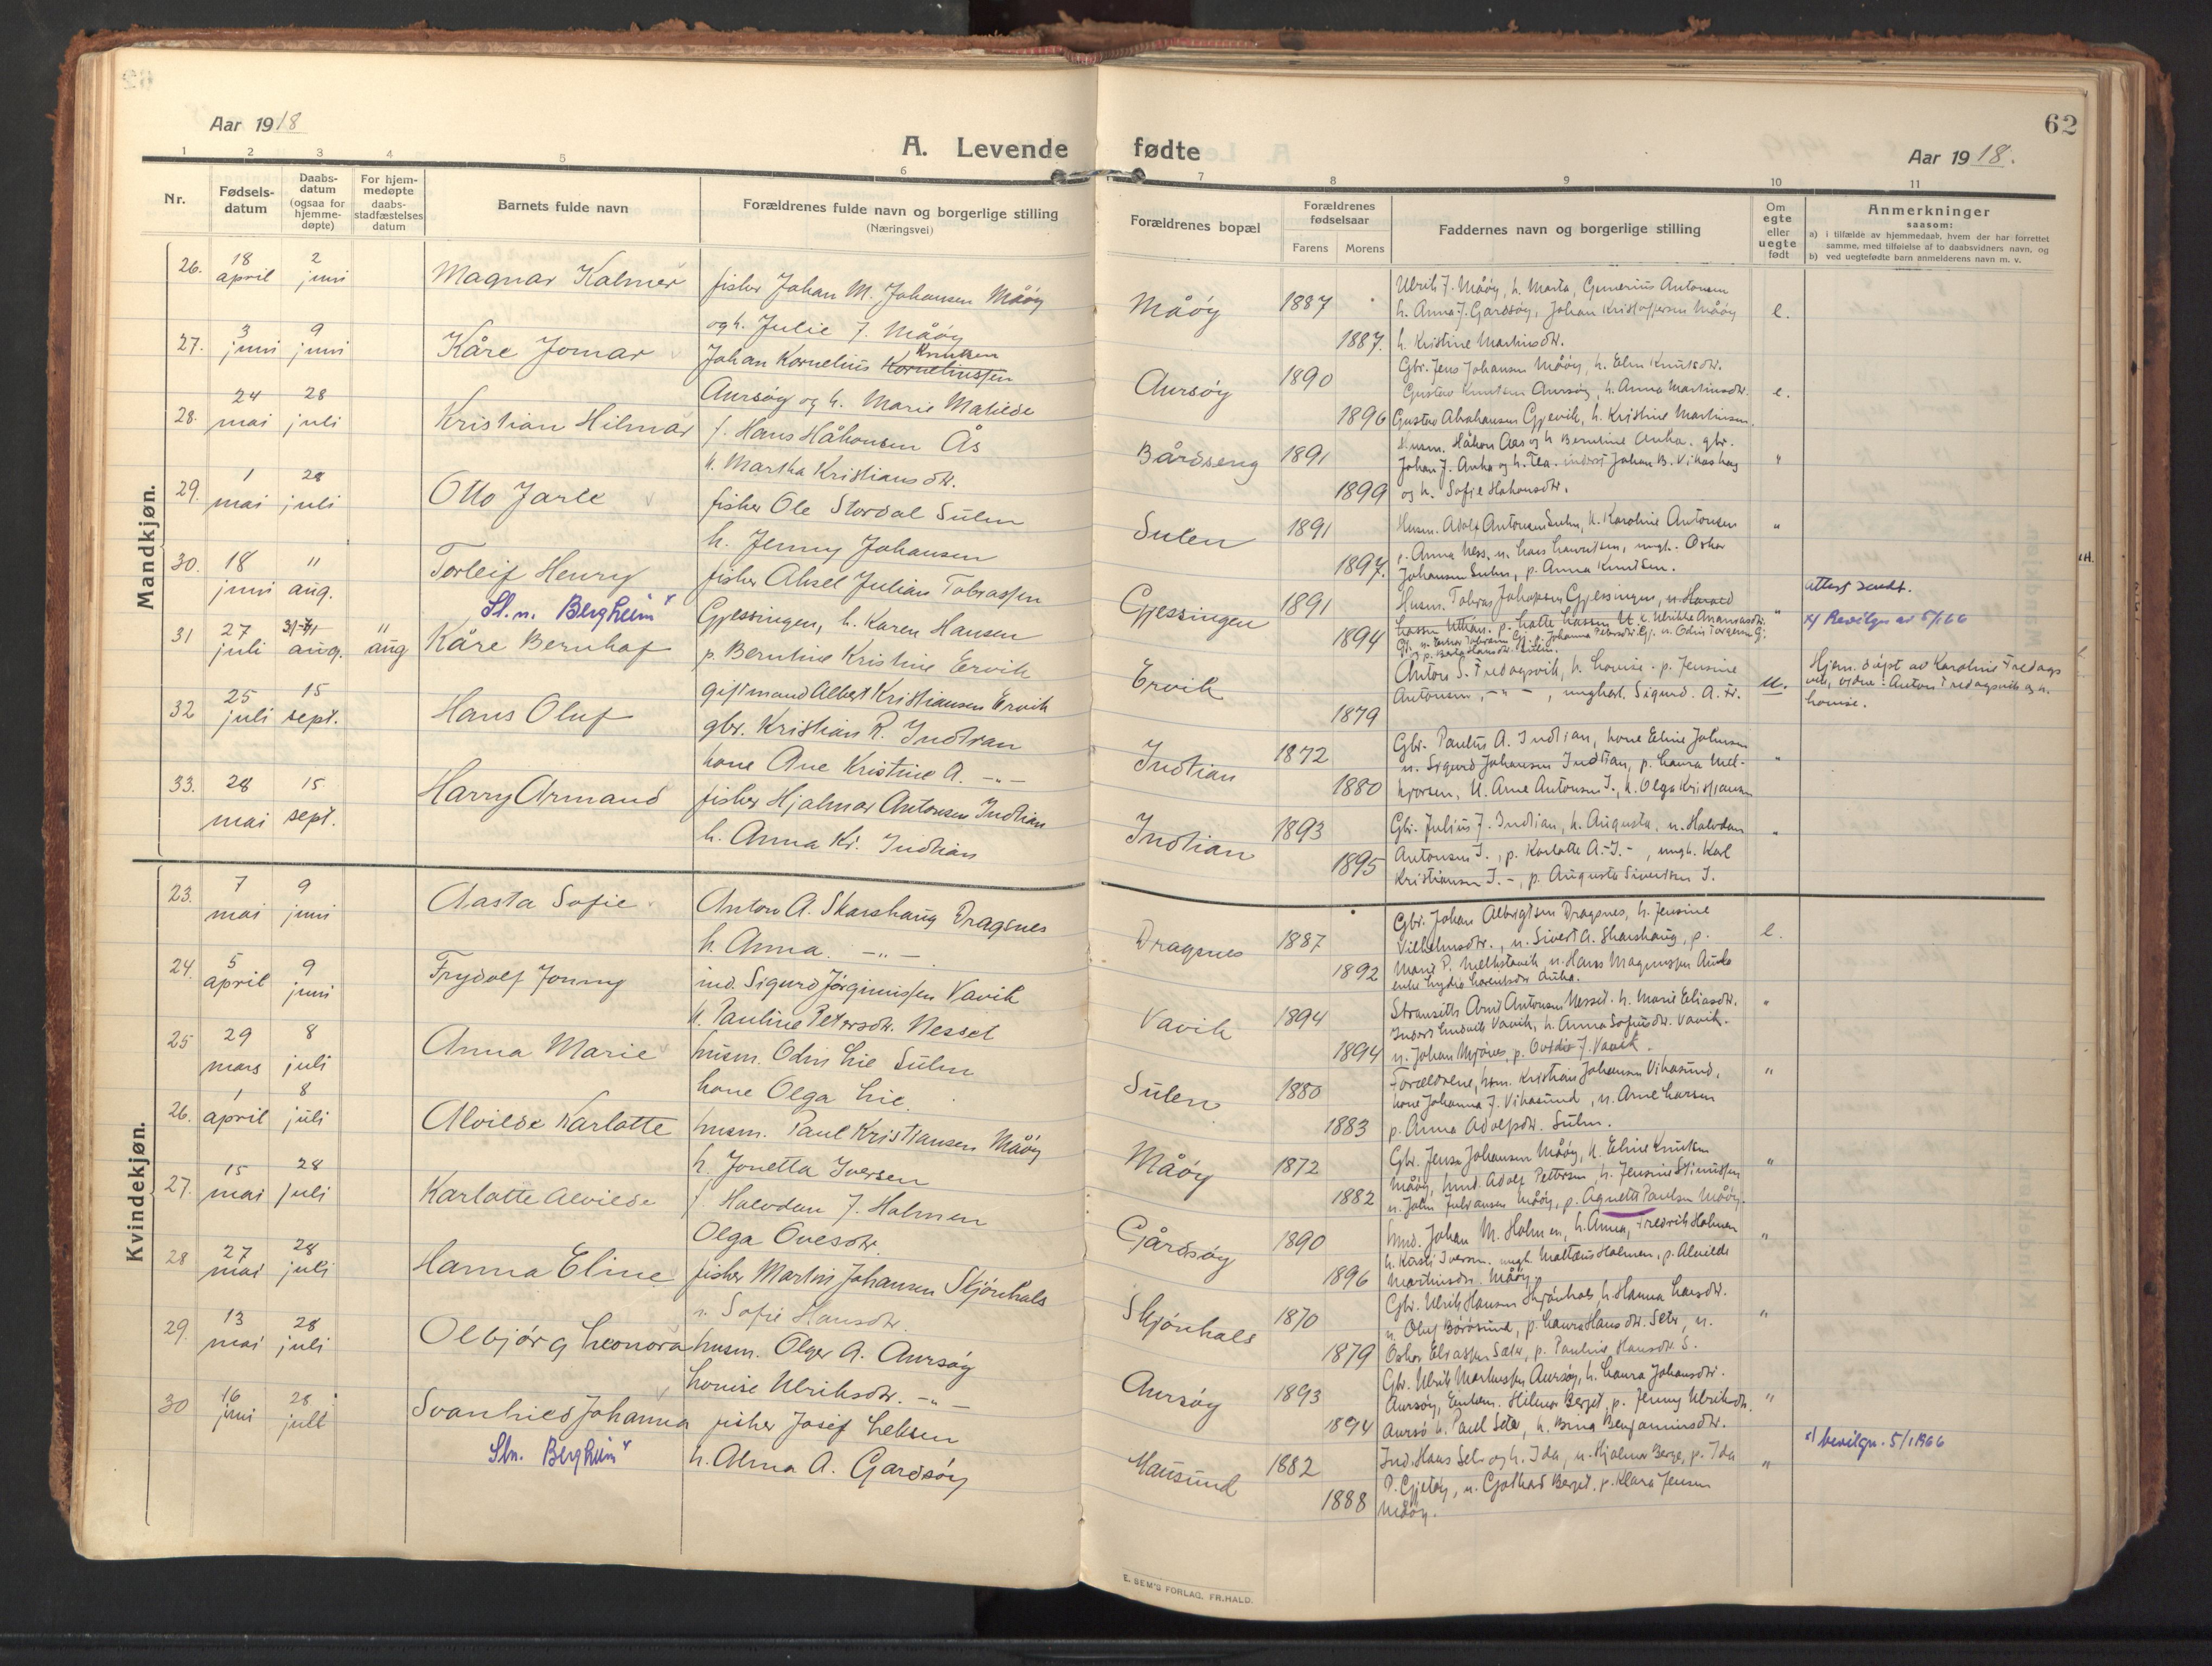 62
Aar 1918
A. Levende fødte
Aar 1918.
1 2 3 4 5 6 7 8 9 10 11
Nr.
Fødsels-
datum
Daabs-
datum
(ogsaa for
hjemme-
døpte)
For hjem-
medøpte
daabs-
stadfæstelses
datum
Barnets fulde navn
Forældrenes fulde navn og borgerlige stilling
(Næringsvei)
Forældrenes bopæl
Forældrenes
fødselsaar
Farens Morens
Faddernes navn og borgerlige stilling
Om
egte
eller
uegte
født
Anmerkninger
saasom:
a) i tilfælde av hjemmedaab, hvem der har forrettet
samme, med tilføielse af to daabsvidners navn, og
b) ved uegtefødte barn anmelderens navn m. v.
Mandkjøn.
26. 18 april 2 juni Magnar Kalmer
fisker Johan M. Johansen Måøy
og h. Julie J. Måøy
Måøy 1887 1887.
Ulrik J. Måøy, h. Marta, Gunerius Antonsen
h. Anna J. Gårdsøy, Johan Kristoffersen Måøy
h. Kristine Martinsdtr.
e.
27. 3 juni 9 juni Kåre Jomar
Johan Kornelius Kornelinssen Knutsen
Aursøy og h. Marie Matilde
Aursøy 1890 1896
Gbr. Jens Johansen Måøy, h. Elin Knutsdtr.
Gustav Knutsen Aursøy, h. Anna Martinsdtr.
Gustav Abrahamsen Gjevik, h. Kristine Martinsen.
e.
28. 24 mai 28 juli Kristian Hilmar
f. Hans Håkonsen Ås
h. Martha Kristiansdtr.
Bårdseng 1891 1899
Husm. Håkon Aas og h. Berntine Anka. gbr.
Johan J. Anka og h. Tea. inderst Johan B. Vikaskag
og h. Sofie Håkonsdtr.
"
29. 1 mai 28 juli Otto Jarle
fisker Ole Stordal Sulen
h. Jenny Johansen
Sulen 1891 1897.
Husm. Adolf Antonsen Sulen, h. Karoline Antonsen
p. Anna Ness, u. Lars Lauritsen, ungk. Oskar
Johansen Sulen, p. Anna Knutsen.
"
30. 18 juni " aug. Torleif Henry
Sl.n. Bergheim x
fisker Aksel Julian Tobiassen
Gjessingen, h. Karen Hansen
Gjessingen 1891 1894
Husm. Tobias Johansen Gjessingen, u. Harald
"
attest sendt.
x/ Bevilgn av 5/1 66
31 27 juli 31-11 aug. " aug Kåre Bernhof
p. Berntine Kristine Ervik
gift mand Albert Kristiansen Ervik
Ervik 1879
Anton S. Fredagsvik, h. Lovise. p. Jensine
Antonsen, -"-, ungkarl. Sigurd. A. Fr.
u.
Hjem. døpt av Karoline Fredags
vik, vidne: Anton Fredagsvik og h.
Lovise.
32 25 juli 15 sept. Hans Oluf
gbr. Kristian R. Indtian
kone Ane Kristine A. -"-
Indtian 1872 1880
Gbr. Paulus A. Indtian, kone Eline Johnsen
u. Sigurd Johansen Indtian, p. Laura Mel-
kjorsen, U. Arne Antonsen I., h. Olga Kristiansen
"
33. 28 mai 15 sept. Harry Armand
fisker Hjalmar Antonsen Indtian
h. Anna Kr. Indtian
Indtian 1893 1895
Gbr. Julius J. Indtian, h. Augusta, u. Halvdan
Antonsen I., p. Karlotte A. I.-, ungk. Karl
Kristiansen I.-, p. Augusta Sivertsen I.
"
Kvindekjøn.
23. 7 mai 9 juni Aasta Sofie
Anton A. Skarshaug Dragsnes
h. Anna. -"-
Dragsnes 1887 1892
Gbr. Johan Albrigtsen Dragsnes, h. Jensine
Vilhelmsdtr., u. Sivert A. Skarshaug, p.
Marie P. Melkstavik u. Hans Magnussen Anka
enke Lydia Lorentsdtr Anka.
e.
24. 5 april 9 juni Frydolf Jonny
ind. Sigurd Jørginussen Vavik
h. Pauline Petersdtr. Nesset
Vavik 1894 1894
Strandsitt. Arnt Antonsen Nesset. h. Marie Eliasdtr.
Inderst Ludvik Vavik, h. Anna Sofiusdtr. Vavik.
u. Johan Mjønes, p. Ovidia J. Vavik.
"
25 29 mars 8 juli Anna Marie
husm. Odin Lie Sulen
kone Olga Lie.
Sulen 1880 1883
Forældrene, hsm. Kristian Johansen Vikasund,
kone Johanna J. Vikasund, u. Arne Larsen
p. Anna Adolfsdtr. Sulen.
"
26. 1 april 8 juli Alvilde Karlotte
husm. Paul Kristiansen Måøy
h. Jonetta Iversen
Måøy 1872 1882
Gbr. Jens Johansen Måøy, h. Eline Knutsen
Måøy, hmd. Adolf Pettersen, h. Jensine
u. John Juliansen Måøy, p. Agnete Paulsen Måøy.
"
27. 15 mai 28 juli Karlotte Alvilde
f. Halvdan J. Holmen
Olga Ovesdtr.
Gårdsøy 1890 1896
hmd. Johan M. Holmen, h. Anna, Fredrik Holmen
h. Kirsti Iversen. ungk. Mattæus Holmen, p. Alvilde
Martinsdtr. Måøy.
"
28 27 mai 28 juli Hanna Eline
fisker Martin Johansen Skjønhals
h. Sofie Hansdtr.
Skjønhals 1870 1879
Gbr. Ulrik Hansen Skjønhals, h. Hanna Larsdtr.
u. Oluf Børøsund, p. Laura Hansdtr. Seter, u.
Oskar Eliassen Sæter, p. Pauline Hansdtr. S.
"
29. 13 mai 28 juli Olbjørg Leonora
husm. Olger A. Aursøy
Lovise Ulriksdtr. -"-
Aursøy 1893 1894
Gbr. Ulrik Markussen Aursøy, h. Laura Johansdtr.
Aursøy, Enkem. Hilmar Berget, p. Jenny Ulriksdtr.
Aursø h. Paul Seter, h. Brina Benjaminsdtr.
"
30 16 juni 28 juli Svanhild Johanna
Sln. Bergheim x
fisker Josef Leksen
h. Alma A. Gårdsøy
Mausund 1882 1888
Ind. Hans Seter og h. Ida, u. Hjalmar Berge, p. Ida
P. Gjetøy, u. Gothard Berget. p. Klara Jensen
Måøy.
"
x/ bevilgn. 5/1 1966
E. SEM'S FORLAG, FR.HALD.